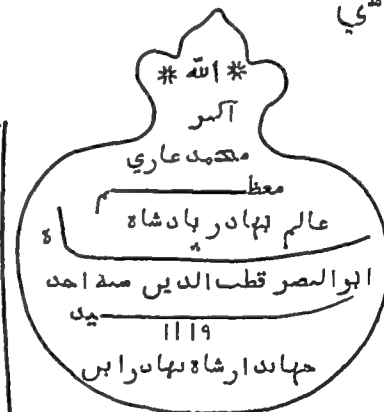 ي
* الله *
اكبر
محمد غازي
معظم
عالم بهادر بادشاه
ه
ابو النصر قطب الدين سنه احد
سيد
١١١٩
جهاندار شاه بهادر ابن